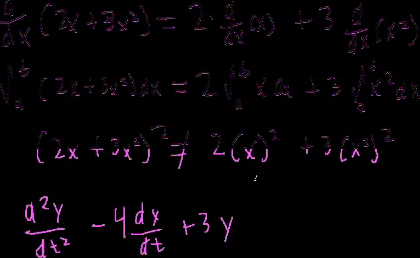 d/dx (2x + 3x²) = 2 · d/dx (x) + 3 d/dx (x²)
∫₂⁶ (2x + 3x²) dx = 2 ∫₂⁶ x dx + 3 ∫₂⁶ x² dx
(2x + 3x²)² ≠ 2(x)² + 3(x²)²
d²y/dt² - 4 dy/dt + 3y